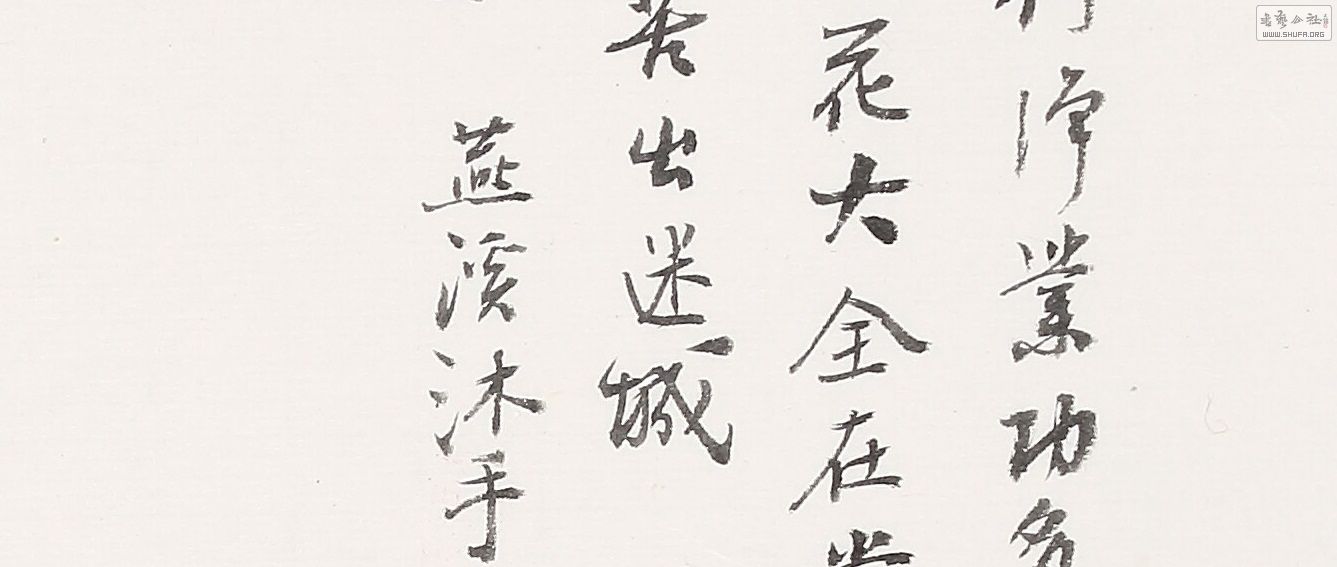 净业功多
花大全在
苦出迷城
燕溪沐手
書藝公社
WWW.SHUFA.ORG